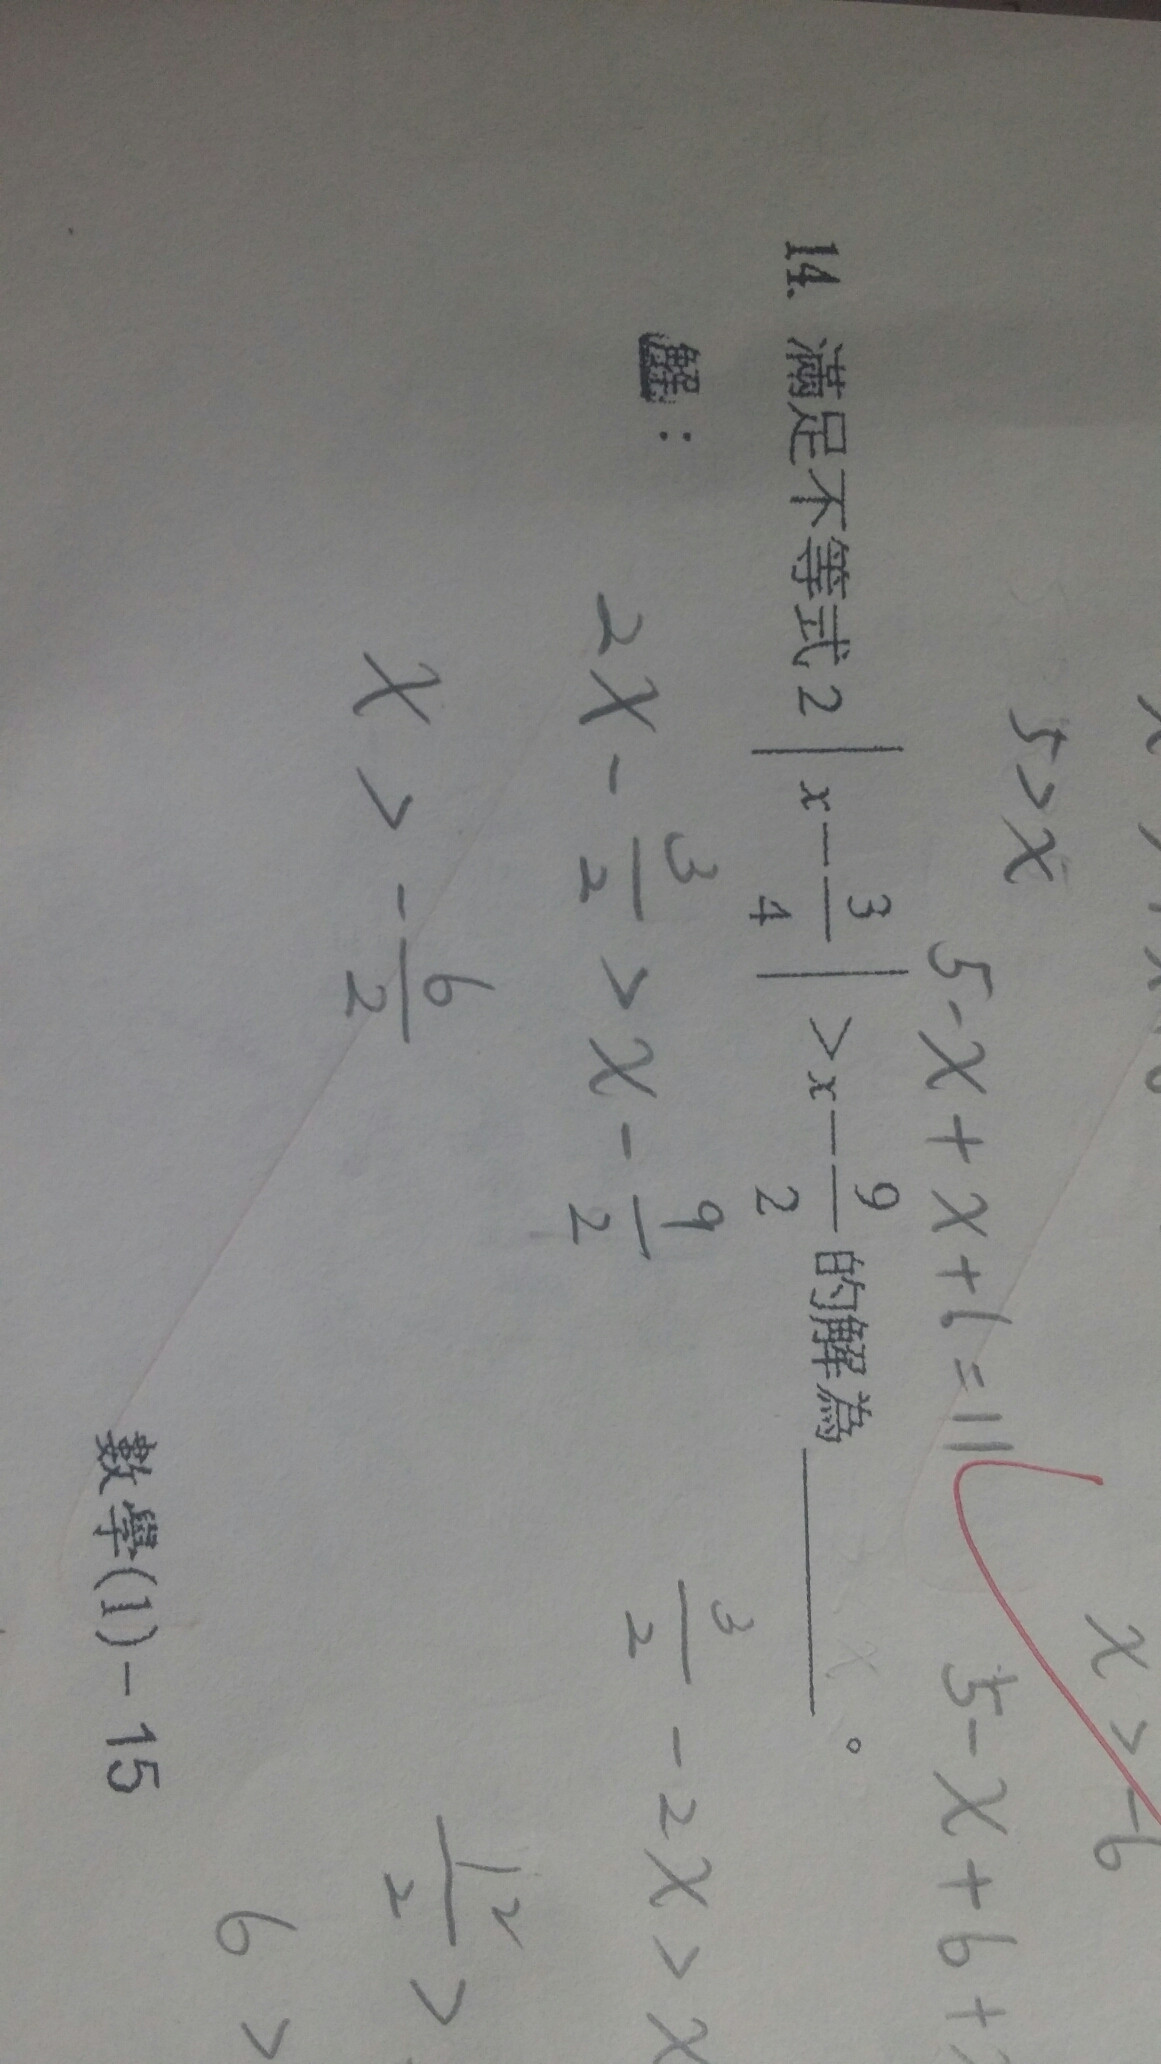 5>x
x>-6
5-x+x+6=11
5-x+6+
14. 滿足不等式 2|x-3/4|>x-9/2 的解為________。
解:
2x-3/2>x-9/2
3/2-2x>x
x>-6/2
12/2>
6>
數學(1)-15